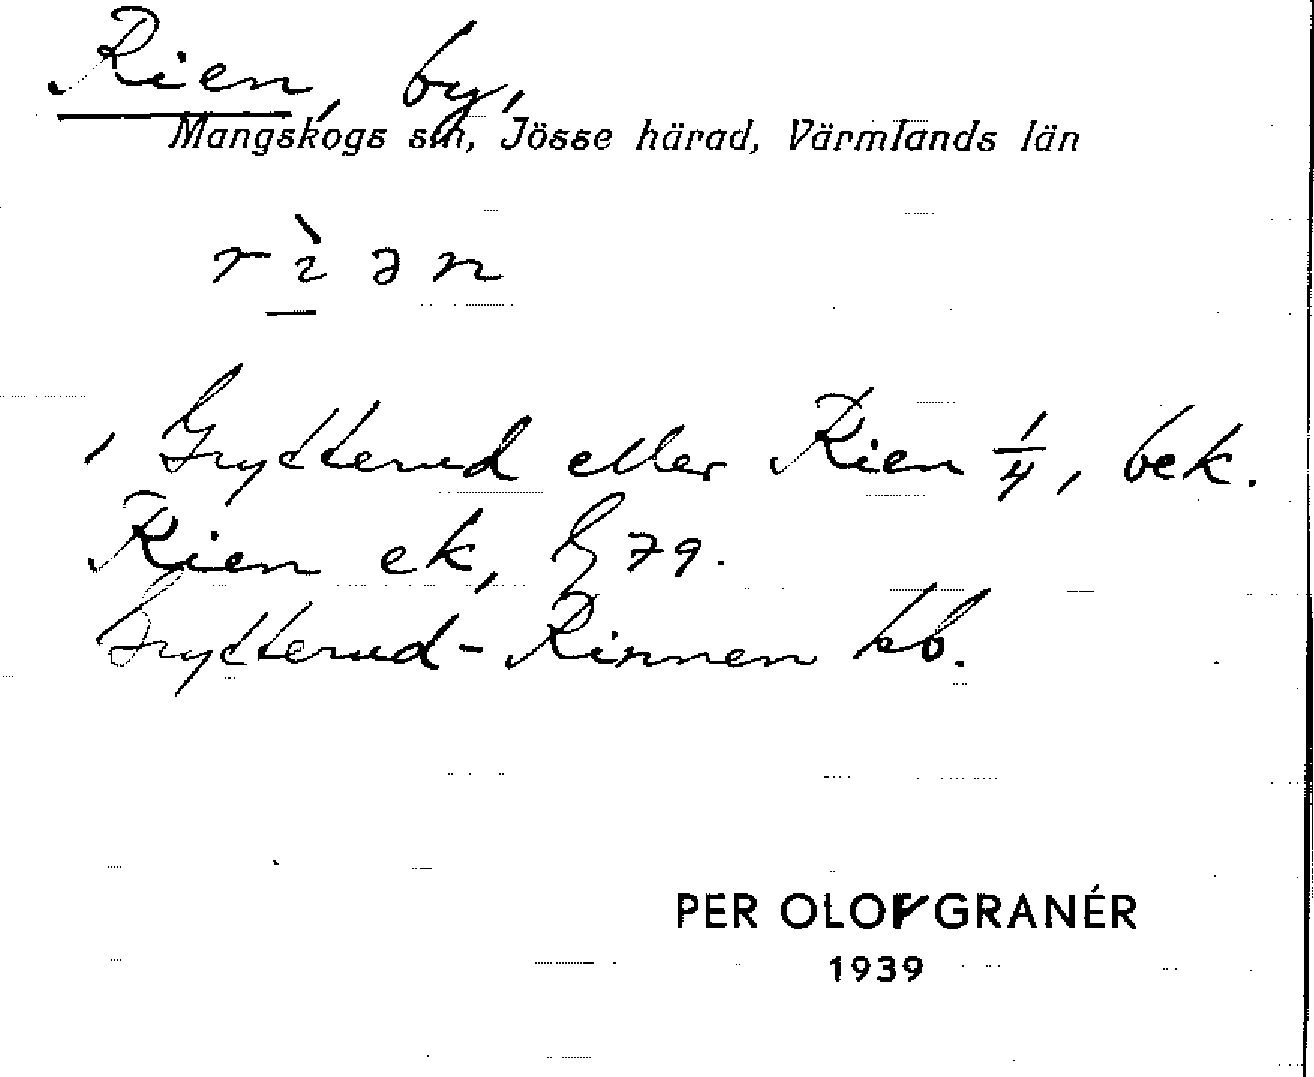 Rien, by,
Mangskogs sn, Jösse härad, Värmlands län
r ì ə n
, Grytterud eller Rien 1/4, bek.
Rien ek, G 79.
Grytterud-Rinnen kb.
PER OLOF GRANÉR
1939